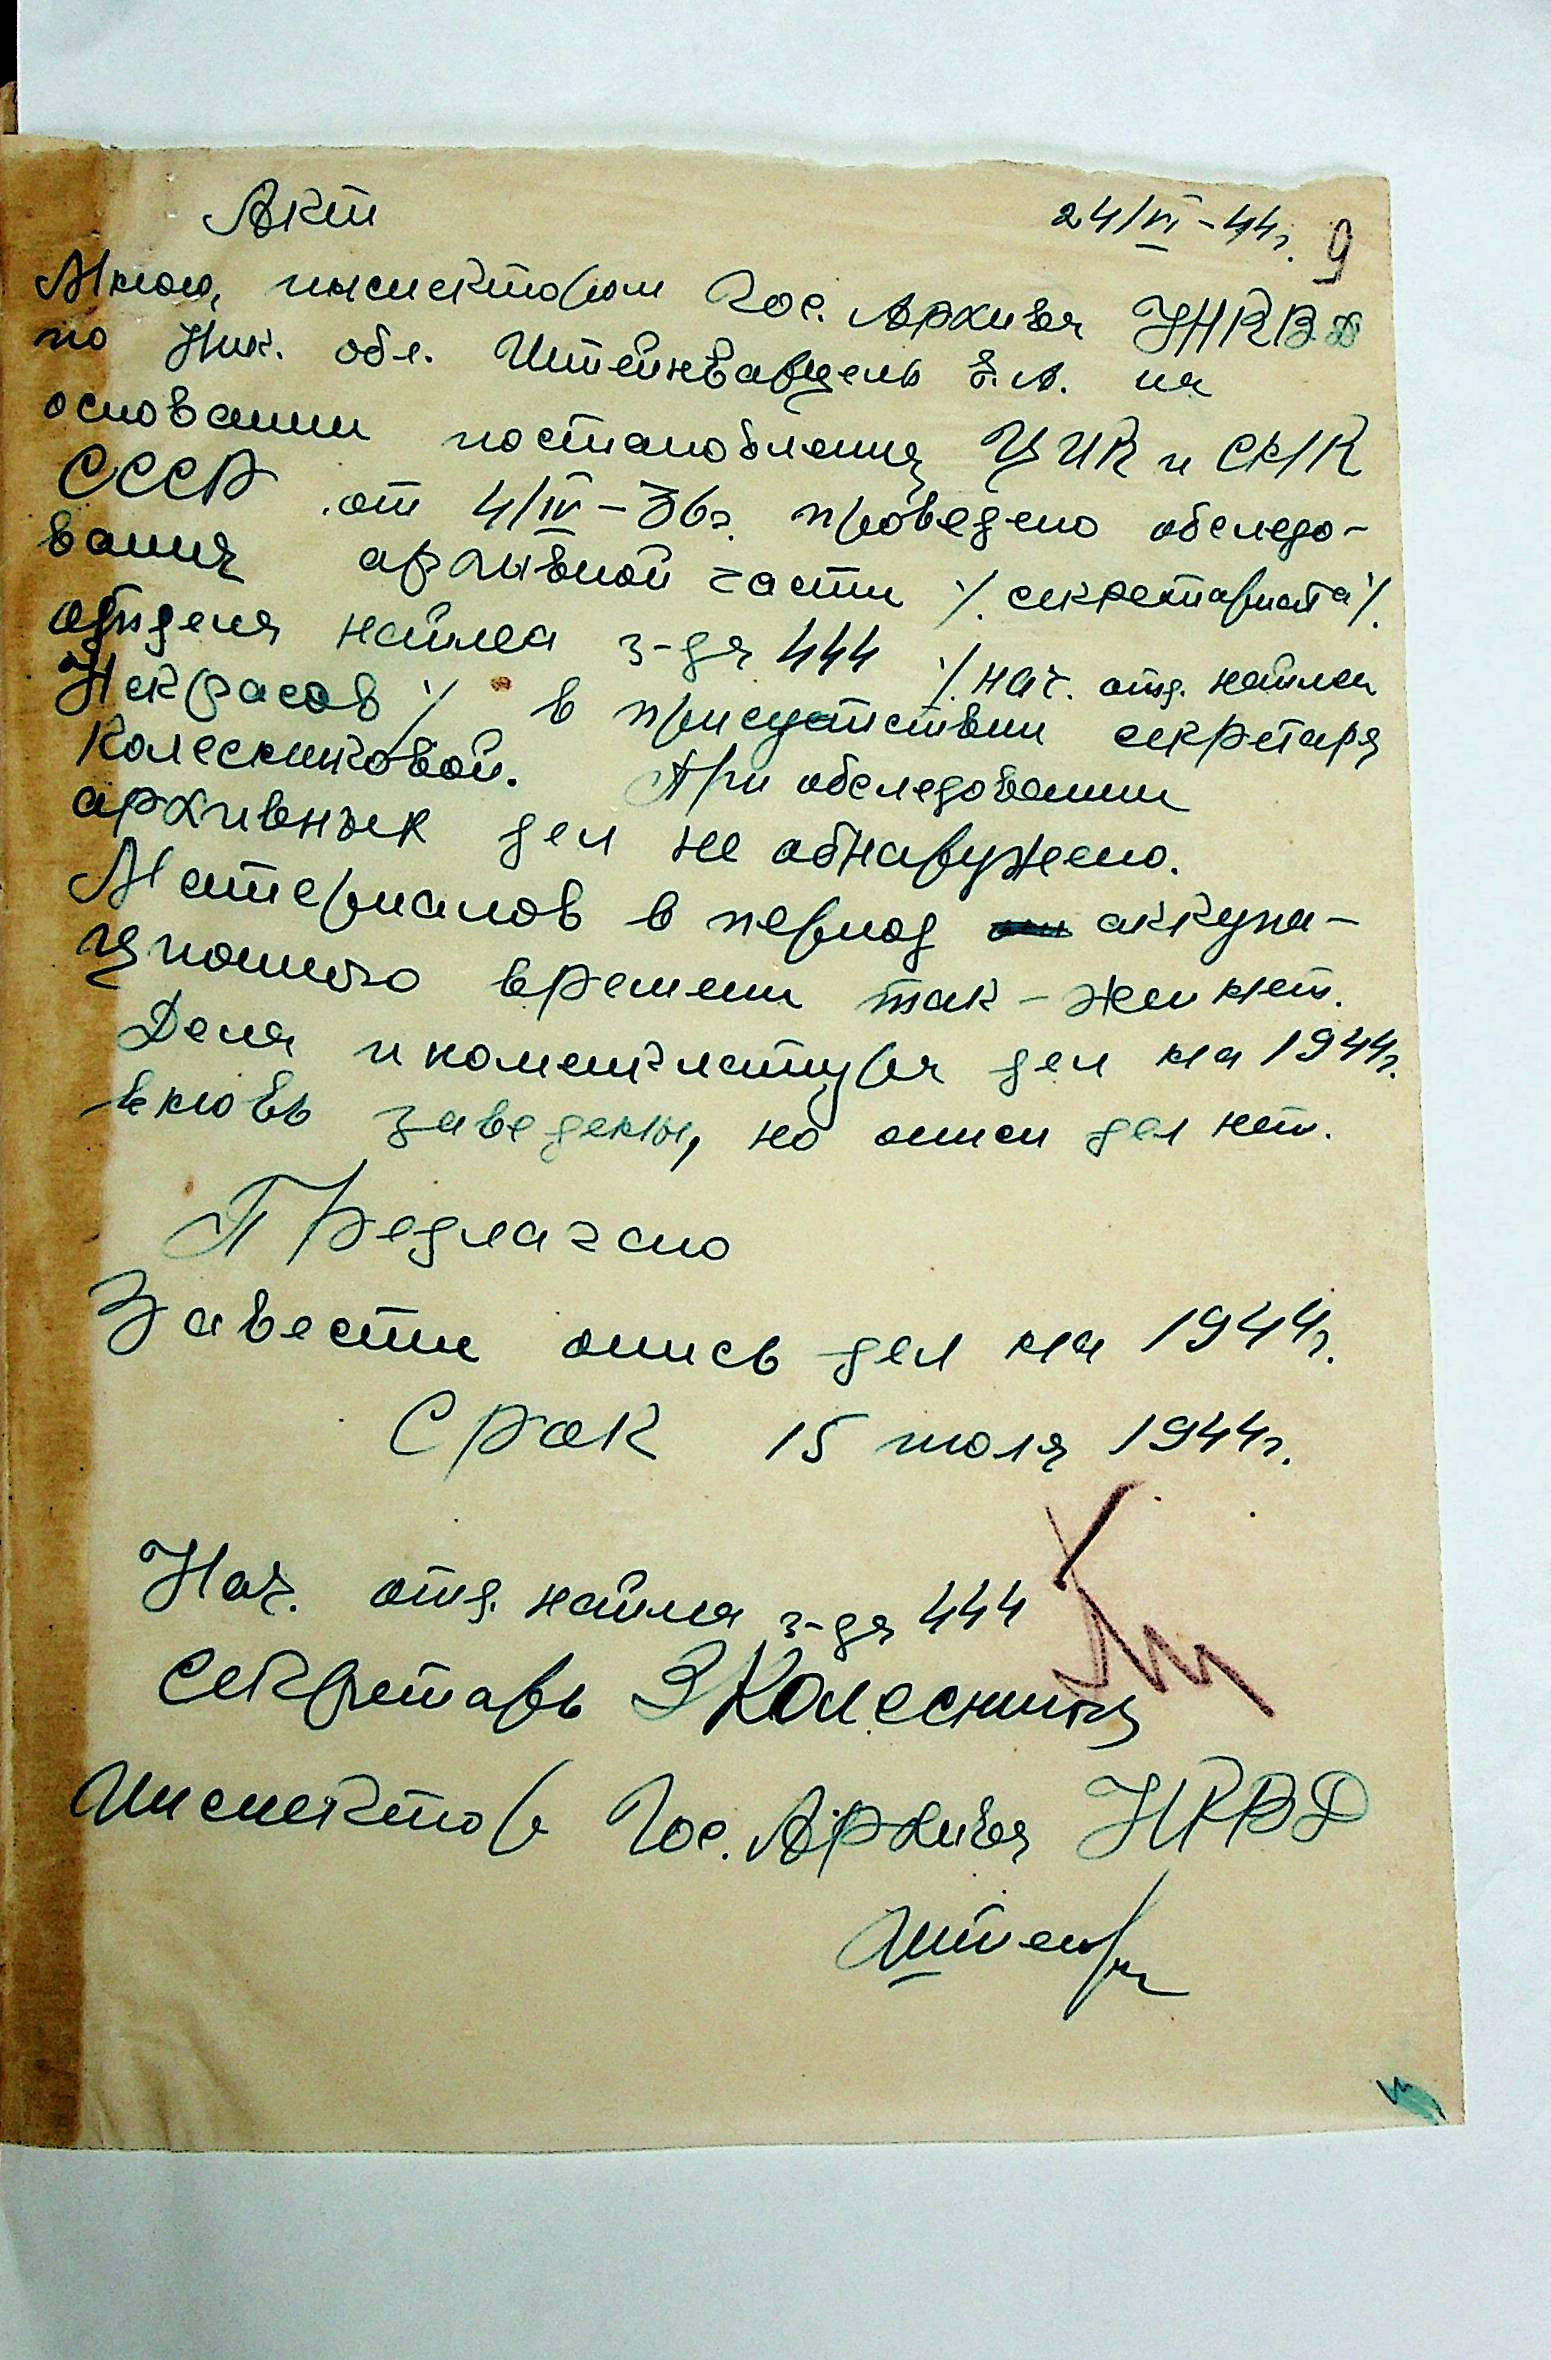 Акт 24/VI-44г. 9
Мною, инспектором Гос. Архива УНКВД
по Ник. обл. Штейнварцель Е.А. на
основании постановления ЦИК и СНК
СССР от 4/IV-36г. проведено обследо-
вания архивной части /. секретариата /.
отдела найма з-да 444 /. нач. отд. найма
Некрасов / в присутствии секретаря
Колесниковой. При обследовании
архивных дел не обнаружено.
Материалов в период аккупа-
ционного времени так-же нет.
Дела и номенклатура дел на 1944г.
вновь заведены, но описи дел нет.
Предлагаю
Завести опись дел на 1944г.
Срок 15 июля 1944г.
Нач. отд. найма з-да 444
Секретарь ЗКолесникова
Инспектор Гос. Архива НКВД